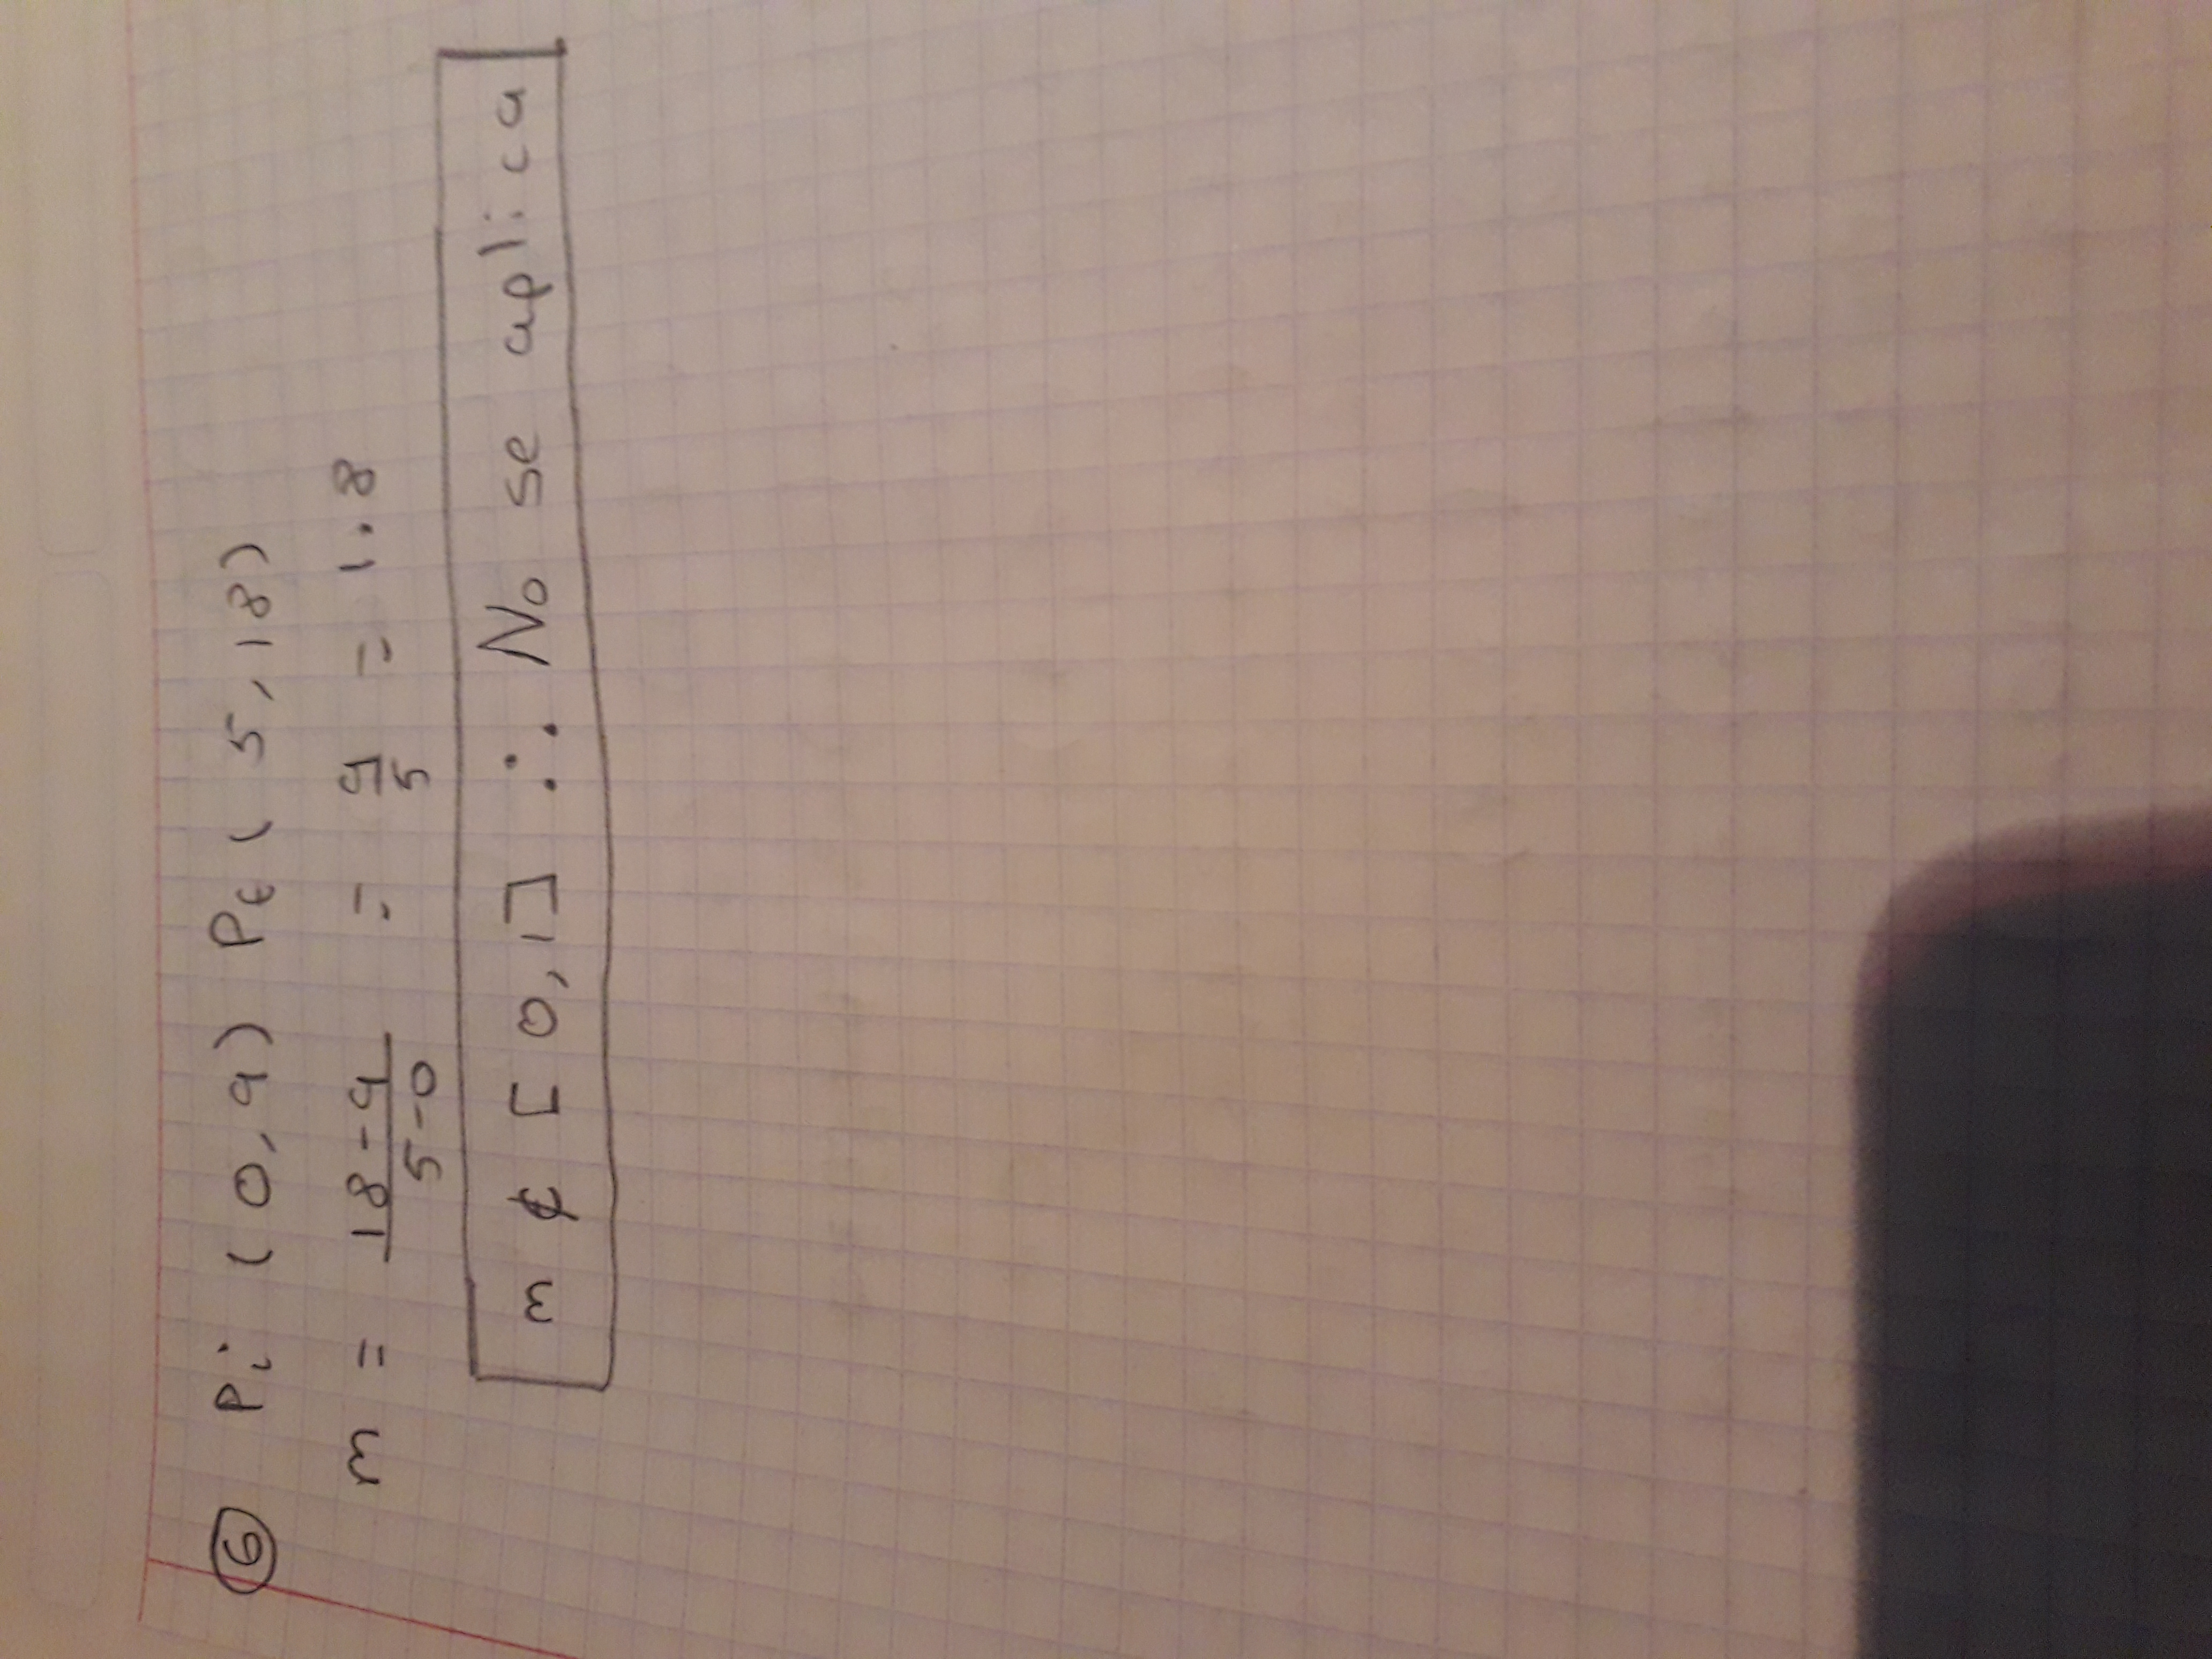 ⑥ Pi (0,9) Pf (5,18)
m = 18-9 / 5-0 = 9/5 = 1.8
m ∉ [0,1] ∴ No se aplica